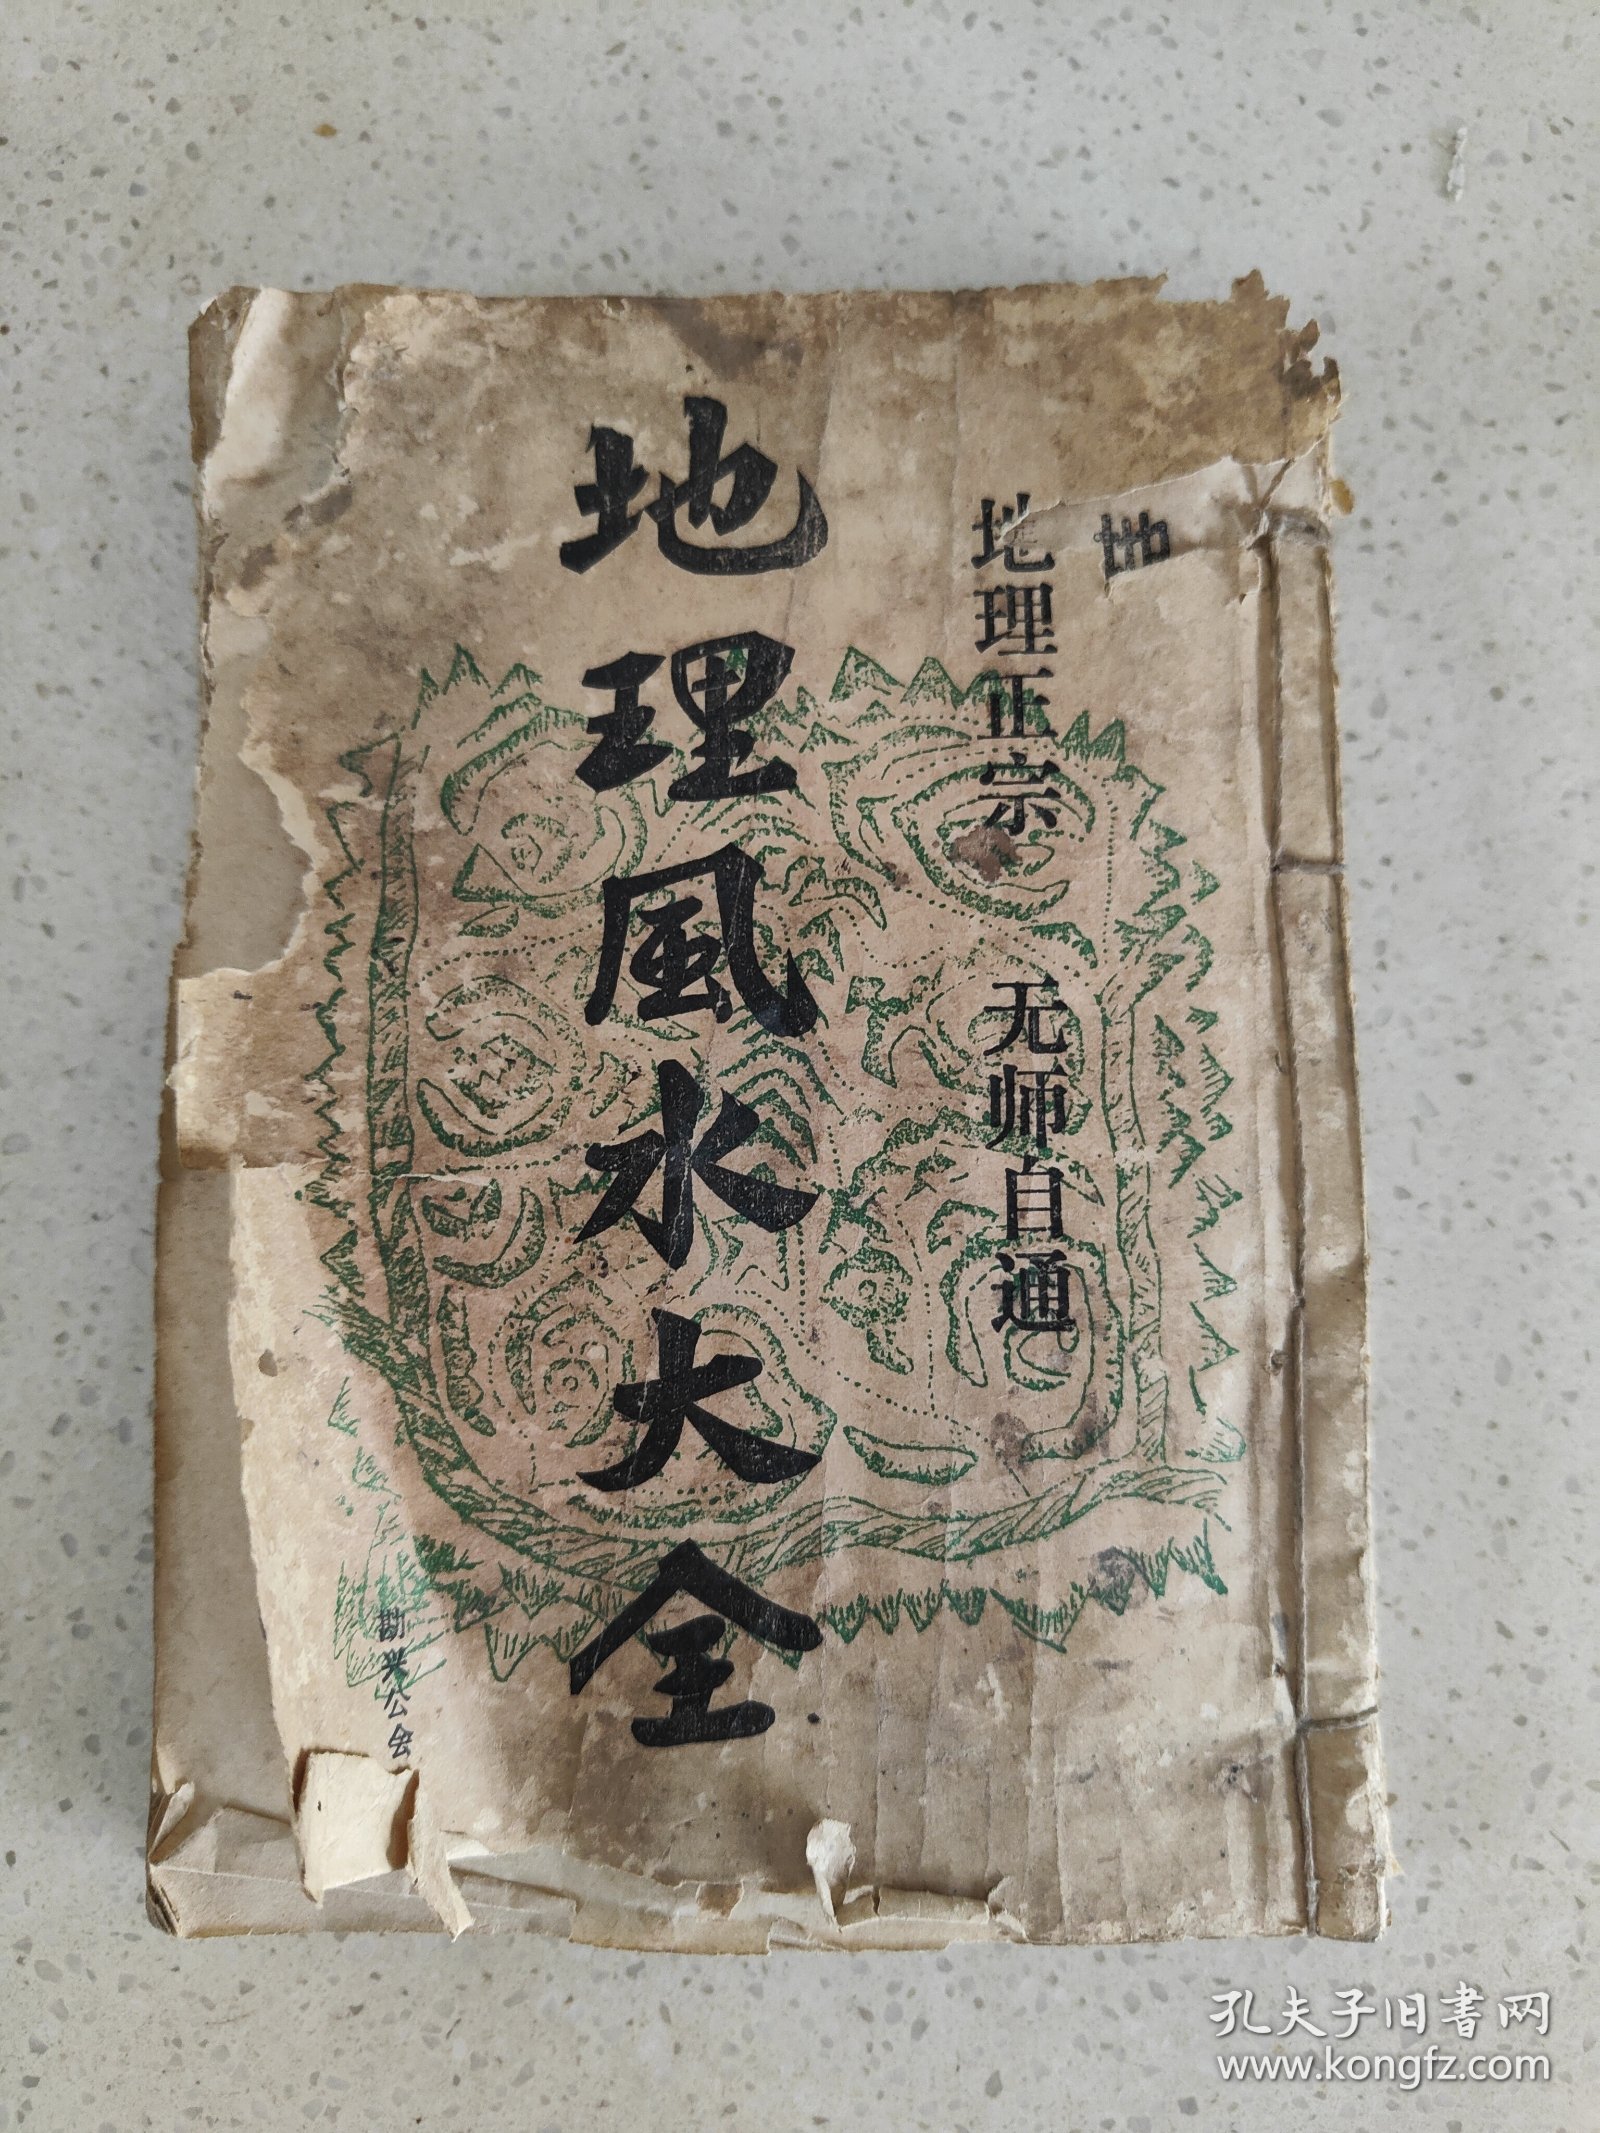 地
地理正宗 无师自通
地理風水大全
勘兴公会
孔夫子旧书网
www.kongfz.com